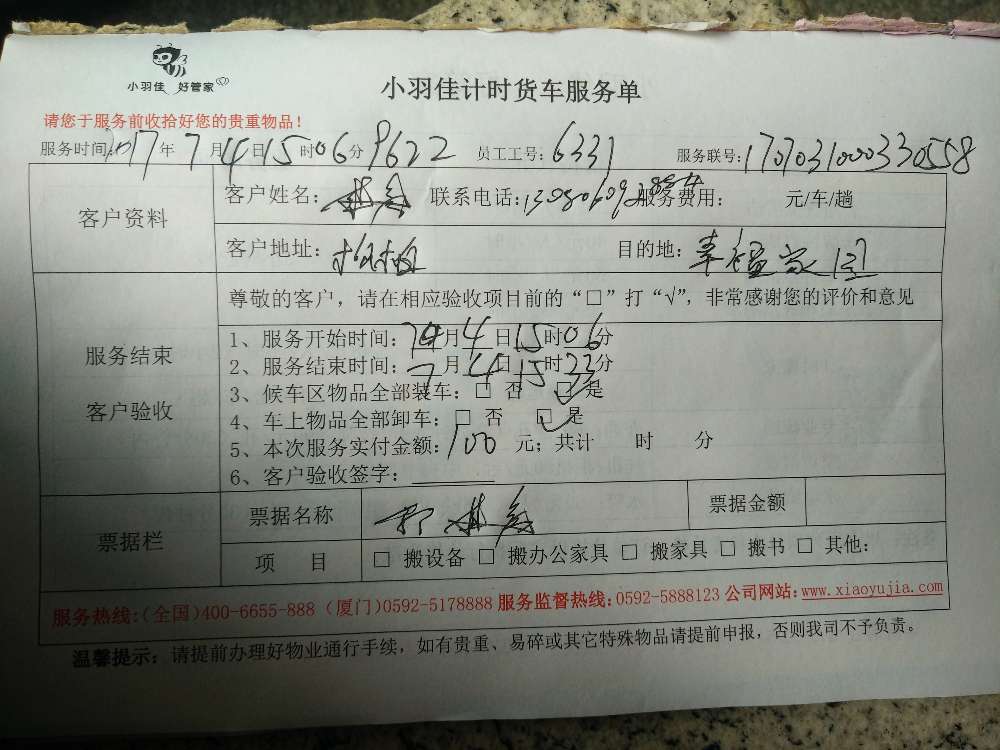 小羽佳 好管家
小羽佳计时货车服务单
请您于服务前收拾好您的贵重物品！
服务时间：2017年7月4日15时06分 9622 员工工号：6331 服务联号：1707031000330558
客户资料
客户姓名： 联系电话： 服务费用： 元/车/趟
客户地址： 目的地：幸福家园
服务结束
客户验收
尊敬的客户，请在相应验收项目前的“□”打“√”，非常感谢您的评价和意见
1、服务开始时间：7月4日15时06分
2、服务结束时间：7月4日15时23分
3、候车区物品全部装车：□ 否 ☑ 是
4、车上物品全部卸车：□ 否 ☑ 是
5、本次服务实付金额：100 元；共计 时 分
6、客户验收签字：
票据栏
票据名称 票据金额
项 目 □ 搬设备 □ 搬办公家具 □ 搬家具 □ 搬书 □ 其他：
服务热线：(全国)400-6655-888（厦门）0592-5178888 服务监督热线：0592-5888123 公司网站：www.xiaoyujia.com
温馨提示：请提前办理好物业通行手续，如有贵重、易碎或其它特殊物品请提前申报，否则我司不予负责。